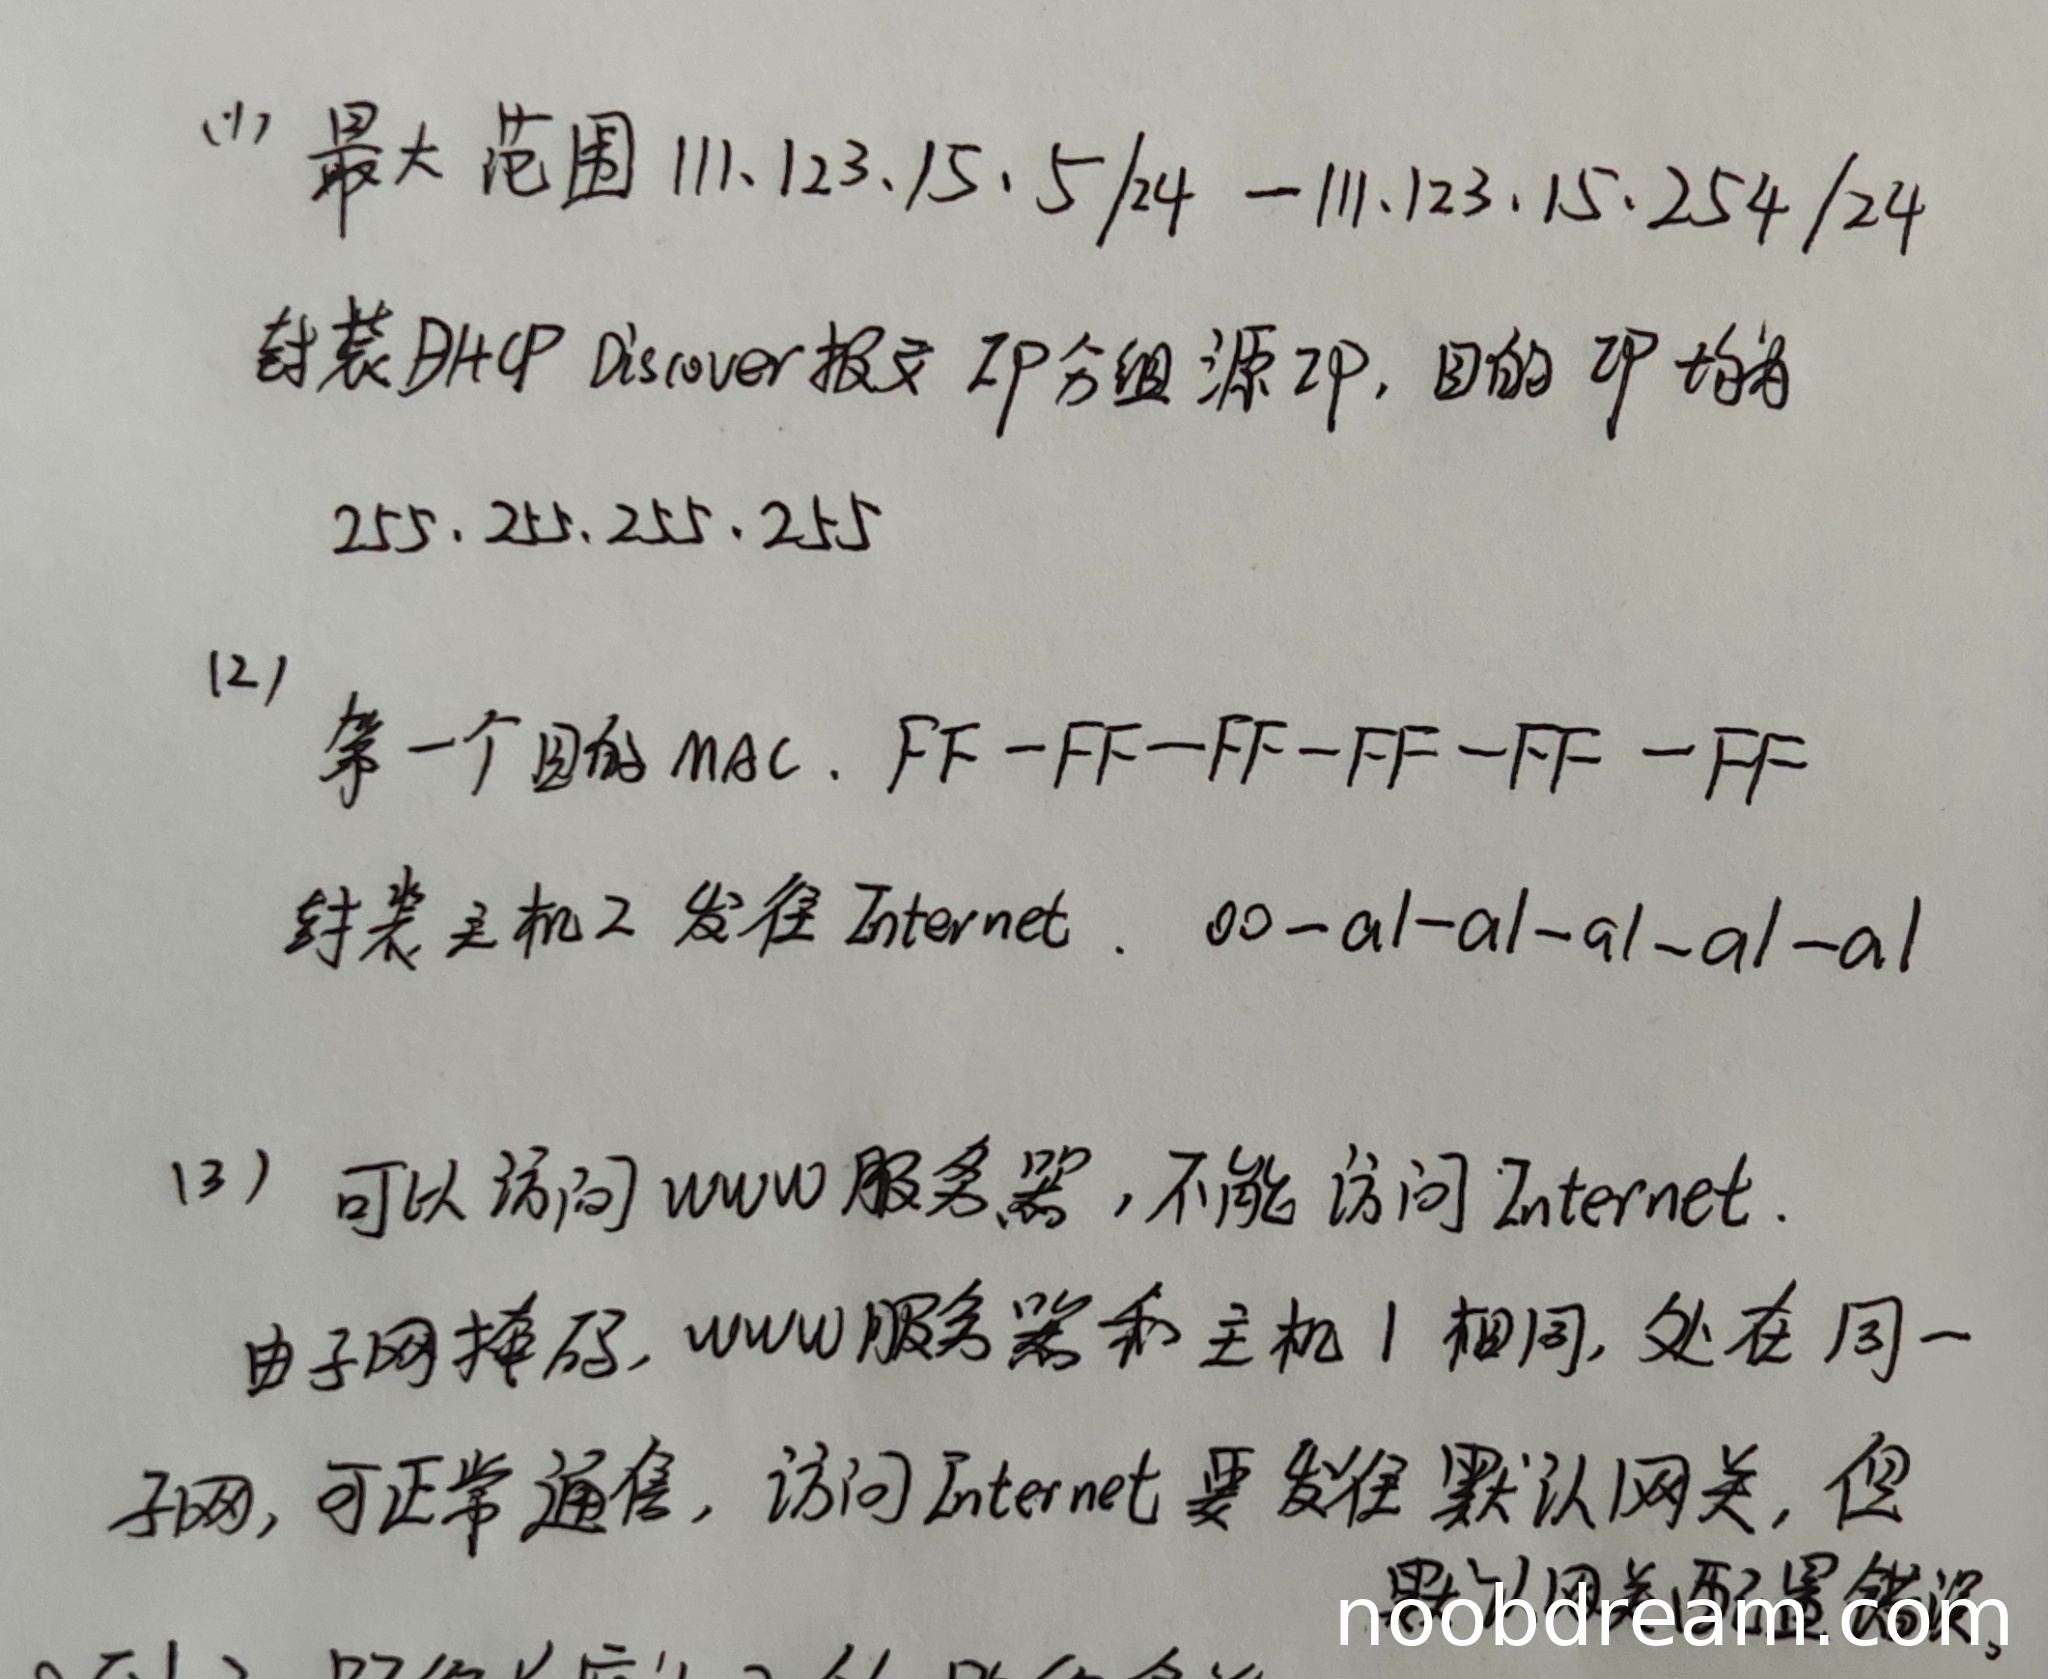 (1) 最大范围 111.123.15.5/24 — 111.123.15.254/24
封装DHCP Discover报文 IP分组 源IP, 目的 IP 均为
255.255.255.255
(2)
第一个目的 MAC. FF-FF-FF-FF-FF-FF
封装主机2 发往 Internet. 00-a1-a1-a1-a1-a1
(3) 可以访问 WWW 服务器, 不能访问 Internet.
由子网掩码, WWW服务器和主机1相同, 处在同一
子网, 可正常通信, 访问 Internet 要发往默认网关, 但
默认网关配置错误,
noobdream.com